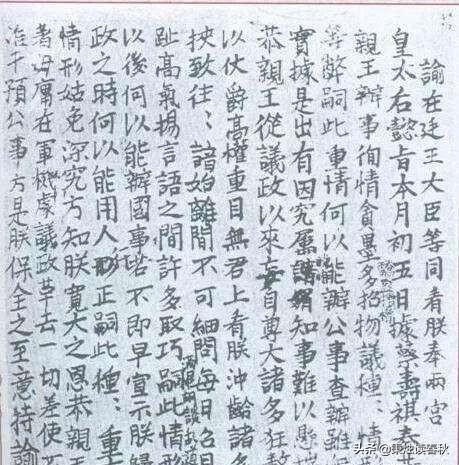 諭在廷王大臣等同看朕奉兩宮
皇太右懿旨本月初五日據蔡壽祺奏
親王辦事徇情貪墨多招物議種:情
等弊嗣此重情何以能辦公事查辦雖
實據是出有因究屬知事難以懸
恭親王從議政以來妄自尊大諸多狂敖
以仗爵高權重目無君上看朕沖齡諸多
挾致往:諳始離間不可細問每日召見
趾高氣揚言語之間許多取巧嗣此情形
以後何以能辦國事若不即早宣示朕歸
政之時何以能用人形正嗣此種:重
情形姑免深究方知朕寬大之恩恭親王
著毋庸在軍機處議政革去一切差使不
准干預公事方是朕保全之至意特諭
頭條@東地讀春秋